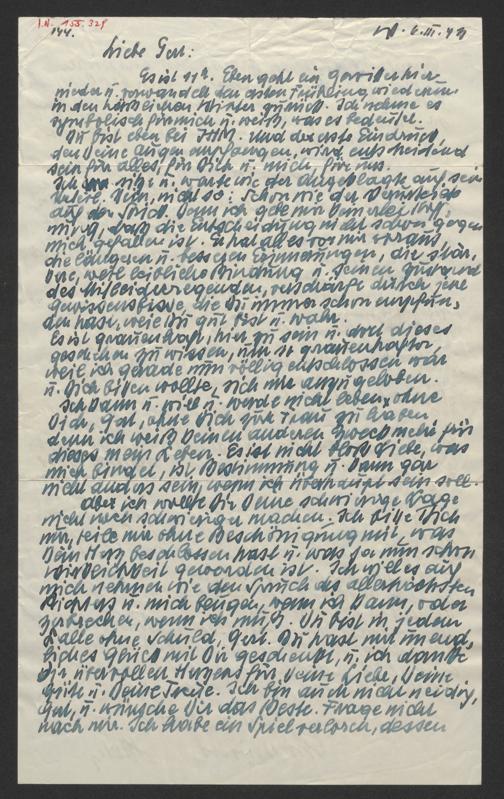 I.N. 155.329
144.
6.III.
Liebe Gerl:
Es ist 11h. Eben geht ein Gewitter hier
nieder u. verwandelt den ersten Frühling wieder
in den hässlichen Winter zurück. Ich nehme es
symbolisch für mich u. weiß, was es bedeutet.
Du bist eben bei IHM. Und der erste Eindruck,
den Deine Augen empfangen, wird entscheidend
sein für alles, für Dich u. mich, für uns.
Ich sitze u. warte wie der Angeklagte auf sein
Urteil. Nein, nicht so: Schon wie der Verurteilte
auf den Spruch. Denn ich gebe mir keinerlei Hoff-
nung, daß die Entscheidung nicht schon gegen
mich gefallen ist. Er hat alles vor mir voraus,
die längeren u. besseren Erinnerungen, die stär-
kere, weil leibliche Bindung u. seinen Zustand
des Mitleiderregenden, verschärft durch jene
Gewissensbisse, die Du immer schon empfun-
den hast, weil Du gut bist u. wahr.
Es ist grauenhaft, hier zu sein u. dort dieses
geschehen zu wissen, um so grauenhafter,
weil ich gerade nun völlig entschlossen war
u. Dich bitten wollte, Dich mir anzugeloben.
Ich kann u. will u. werde nicht leben ohne
Dich, Gerl, ohne Dich zur Frau zu haben,
denn ich weiß keinen anderen Zweck mehr für
dieses mein Leben. Es ist nicht bloß Liebe, was
mich bindet, ist Bestimmung u. kann gar
nicht anders sein, wenn ich überhaupt sein soll.
Aber ich wollte Dir Deine schwierige Lage
nicht noch schwieriger machen. Ich bitte Dich
nur, teile mir ohne Beschönigung mit, was
Dein Herz beschlossen hast u. was ja nun schon
Wirklichkeit geworden ist. Ich will es auf
mich nehmen wie den Spruch des allerhöchsten
Richters u. mich beugen, wenn ich kann, oder
zerbrechen, wenn ich muß. Du bist in jedem
Falle ohne Schuld, Gerl. Du hast mir unend-
liches Glück mit Dir geschenkt, u. ich danke
Dir übervollen Herzens für Deine Liebe, Deine
Güte u. Deine Treue. Ich bin auch nicht neidig,
Gerl, u. wünsche Dir das Beste. Frage nicht
nach mir. Ich habe ein Spiel verloren, dessen